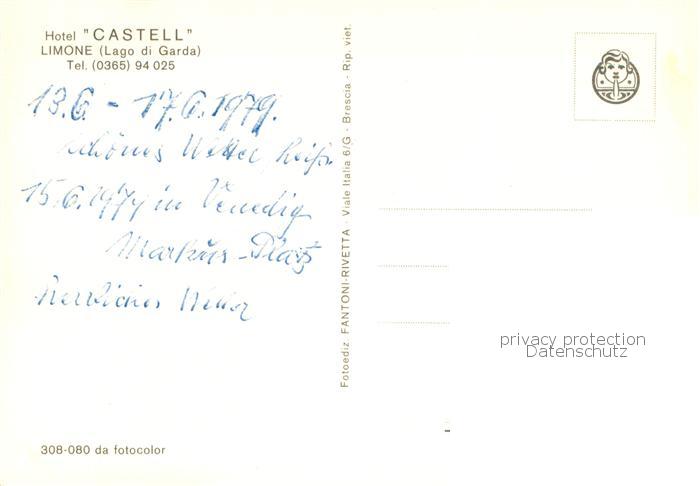 Hotel "CASTELL"
LIMONE (Lago di Garda)
Tel. (0365) 94 025
13.6. - 17.6.1979.
schönes Wetter, heiß.
15.6.1979 in Venedig
Markus-Platz
Herrliches Wetter
308-080 da fotocolor
Fotoediz FANTONI-RIVETTA - Viale Italia 6/G - Brescia - Rip. viet.
privacy protection
Datenschutz